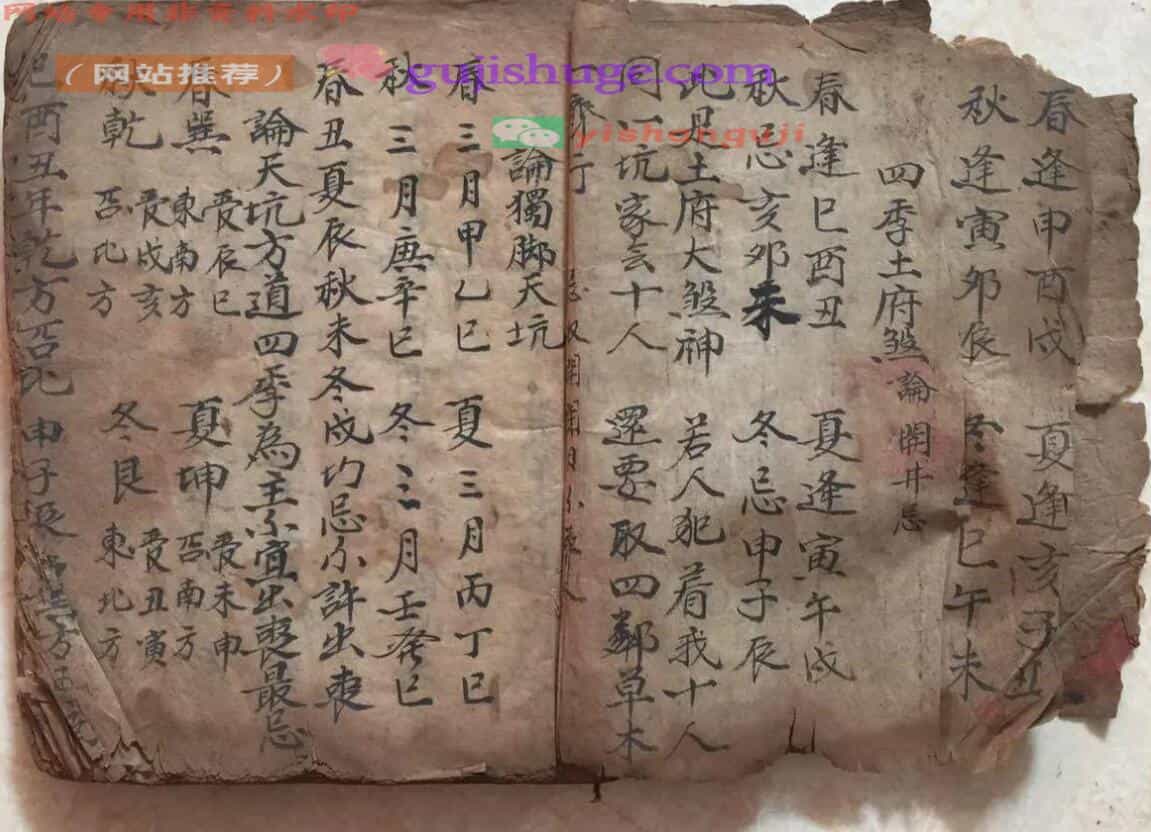 网站专用非资料水印
（网站推荐）
gujishuge.com
yishonguji
春逢申酉戌 夏逢亥子丑
秋逢寅卯辰 冬逢巳午未
四季土府煞論開井忌
春逢巳酉丑 夏逢寅午戌
秋忌亥卯未 冬忌申子辰
此是土府大煞神 若人犯着我十人
同一坑家云十人 還要取四鄰草木
論獨脚天坑
春三月甲乙巳 夏三月丙丁巳
秋三月庚辛巳 冬三月壬癸巳
春丑夏辰秋未冬戌切忌不許出喪
論天坑方道四季為主不宜出喪最忌
春巽 東南方 受辰巳 夏坤 西南方 受未申
秋乾 西北方 受戌亥 冬艮 東北方 受丑寅
酉丑年乾方西北 申子辰 方